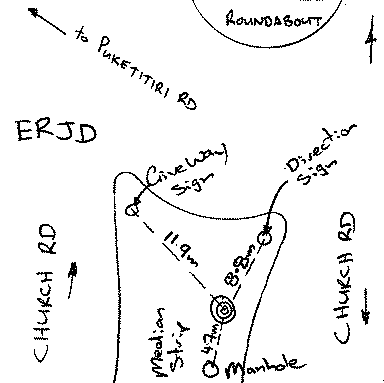 ROUNDABOUT
to PUKETITIRI RD
ERJD
Give Way
Sign
Direction
Sign
11.9m
8.8m
CHURCH RD
CHURCH RD
Median
Strip
4.7m
Manhole